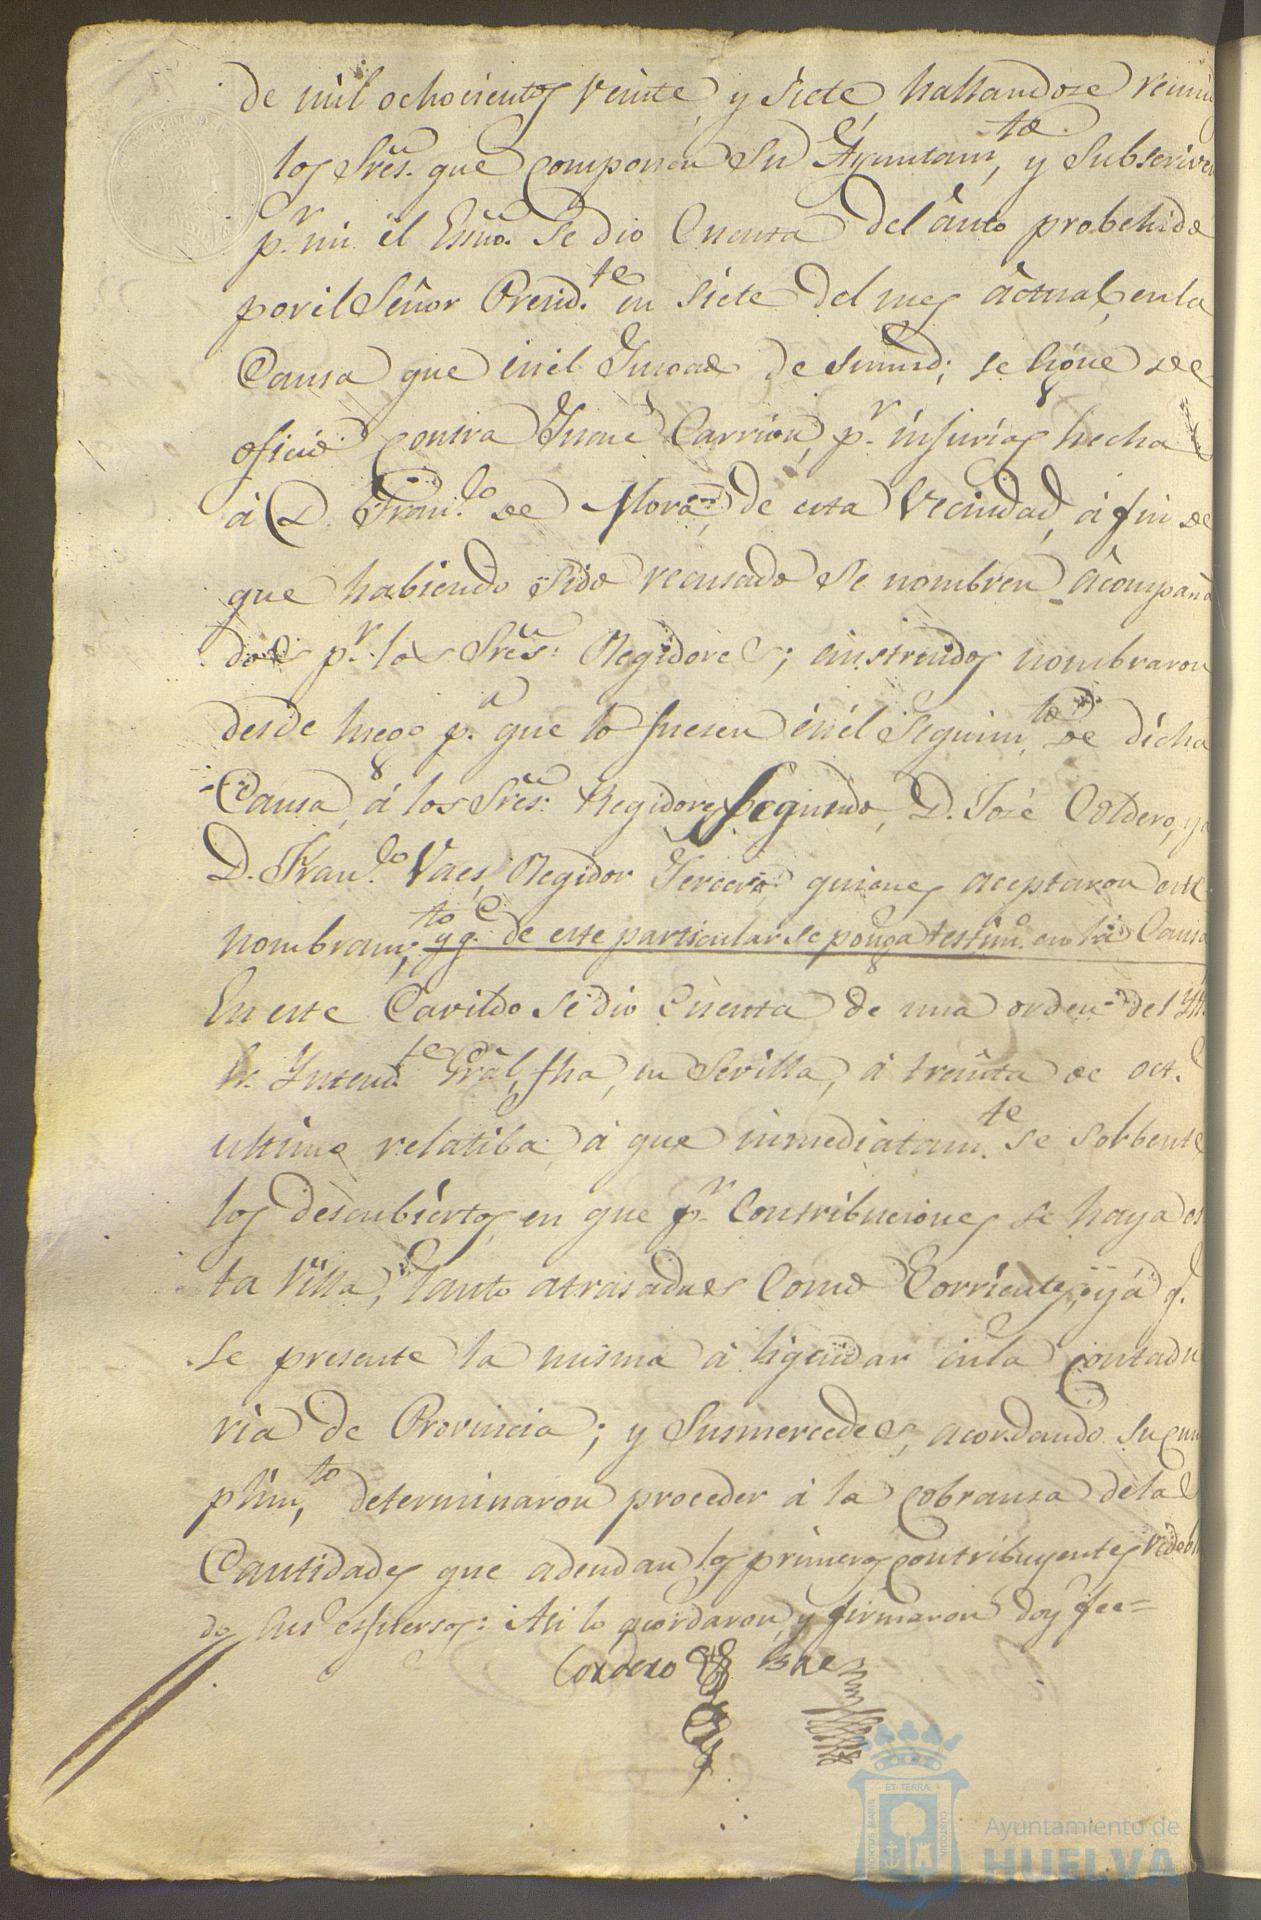 de mil ochocientos veinte y siete hallandose reuni
los Sres. que componen su Ayuntamto. y subscriven
pr. mi el Essno. se dio Cuenta del auto probehido
por el Señor Presidte. en siete del mes actual, en la
Causa que en el Juzgado de Sumrd; se sigue de
oficio contra Juan Carrion, pr. injurias hecha
á D. Franco. de Mora, de esta Vecindad, á fin de
que habiendo sido recusado se nombren acompaña
dos pr. los Sres. Regidores; e instruidos nombraron
desde luego pa. que lo fuesen en el Seguimto. de dicha
Causa, á los Sres. Regidores Segundo, D. José Coldero, y a
D. Franco. Vaes, Regidor Tercero, quienes aceptaron este
nombramto; y q. de este particular se ponga testimo. en la Causa
En este Cavildo se dio Cuenta de una orden del Yll.
Sr. Intendte. Gral, fha, en Sevilla, á treinta de oct.e
ultimo relatiba á que inmediatamte. se solbente
los descubiertos en que pr. Contribuciones se haya es
ta Villa, tanto atrasadas como Corrientes, y á q.
se presente la misma á liquidar en la Contadu
ria de Provincia; y Susmercedes, acordando su cum
plimto, determinaron proceder á la cobransa de las
Cantidades que adeudan los primeros contribuyentes
do sus esfuersos: Asi lo acordaron, y firmaron doy fee=
Cordero
ET TERRÆ
PORTUS MARIS
CUSTODIA
Ayuntamiento de
HUELVA